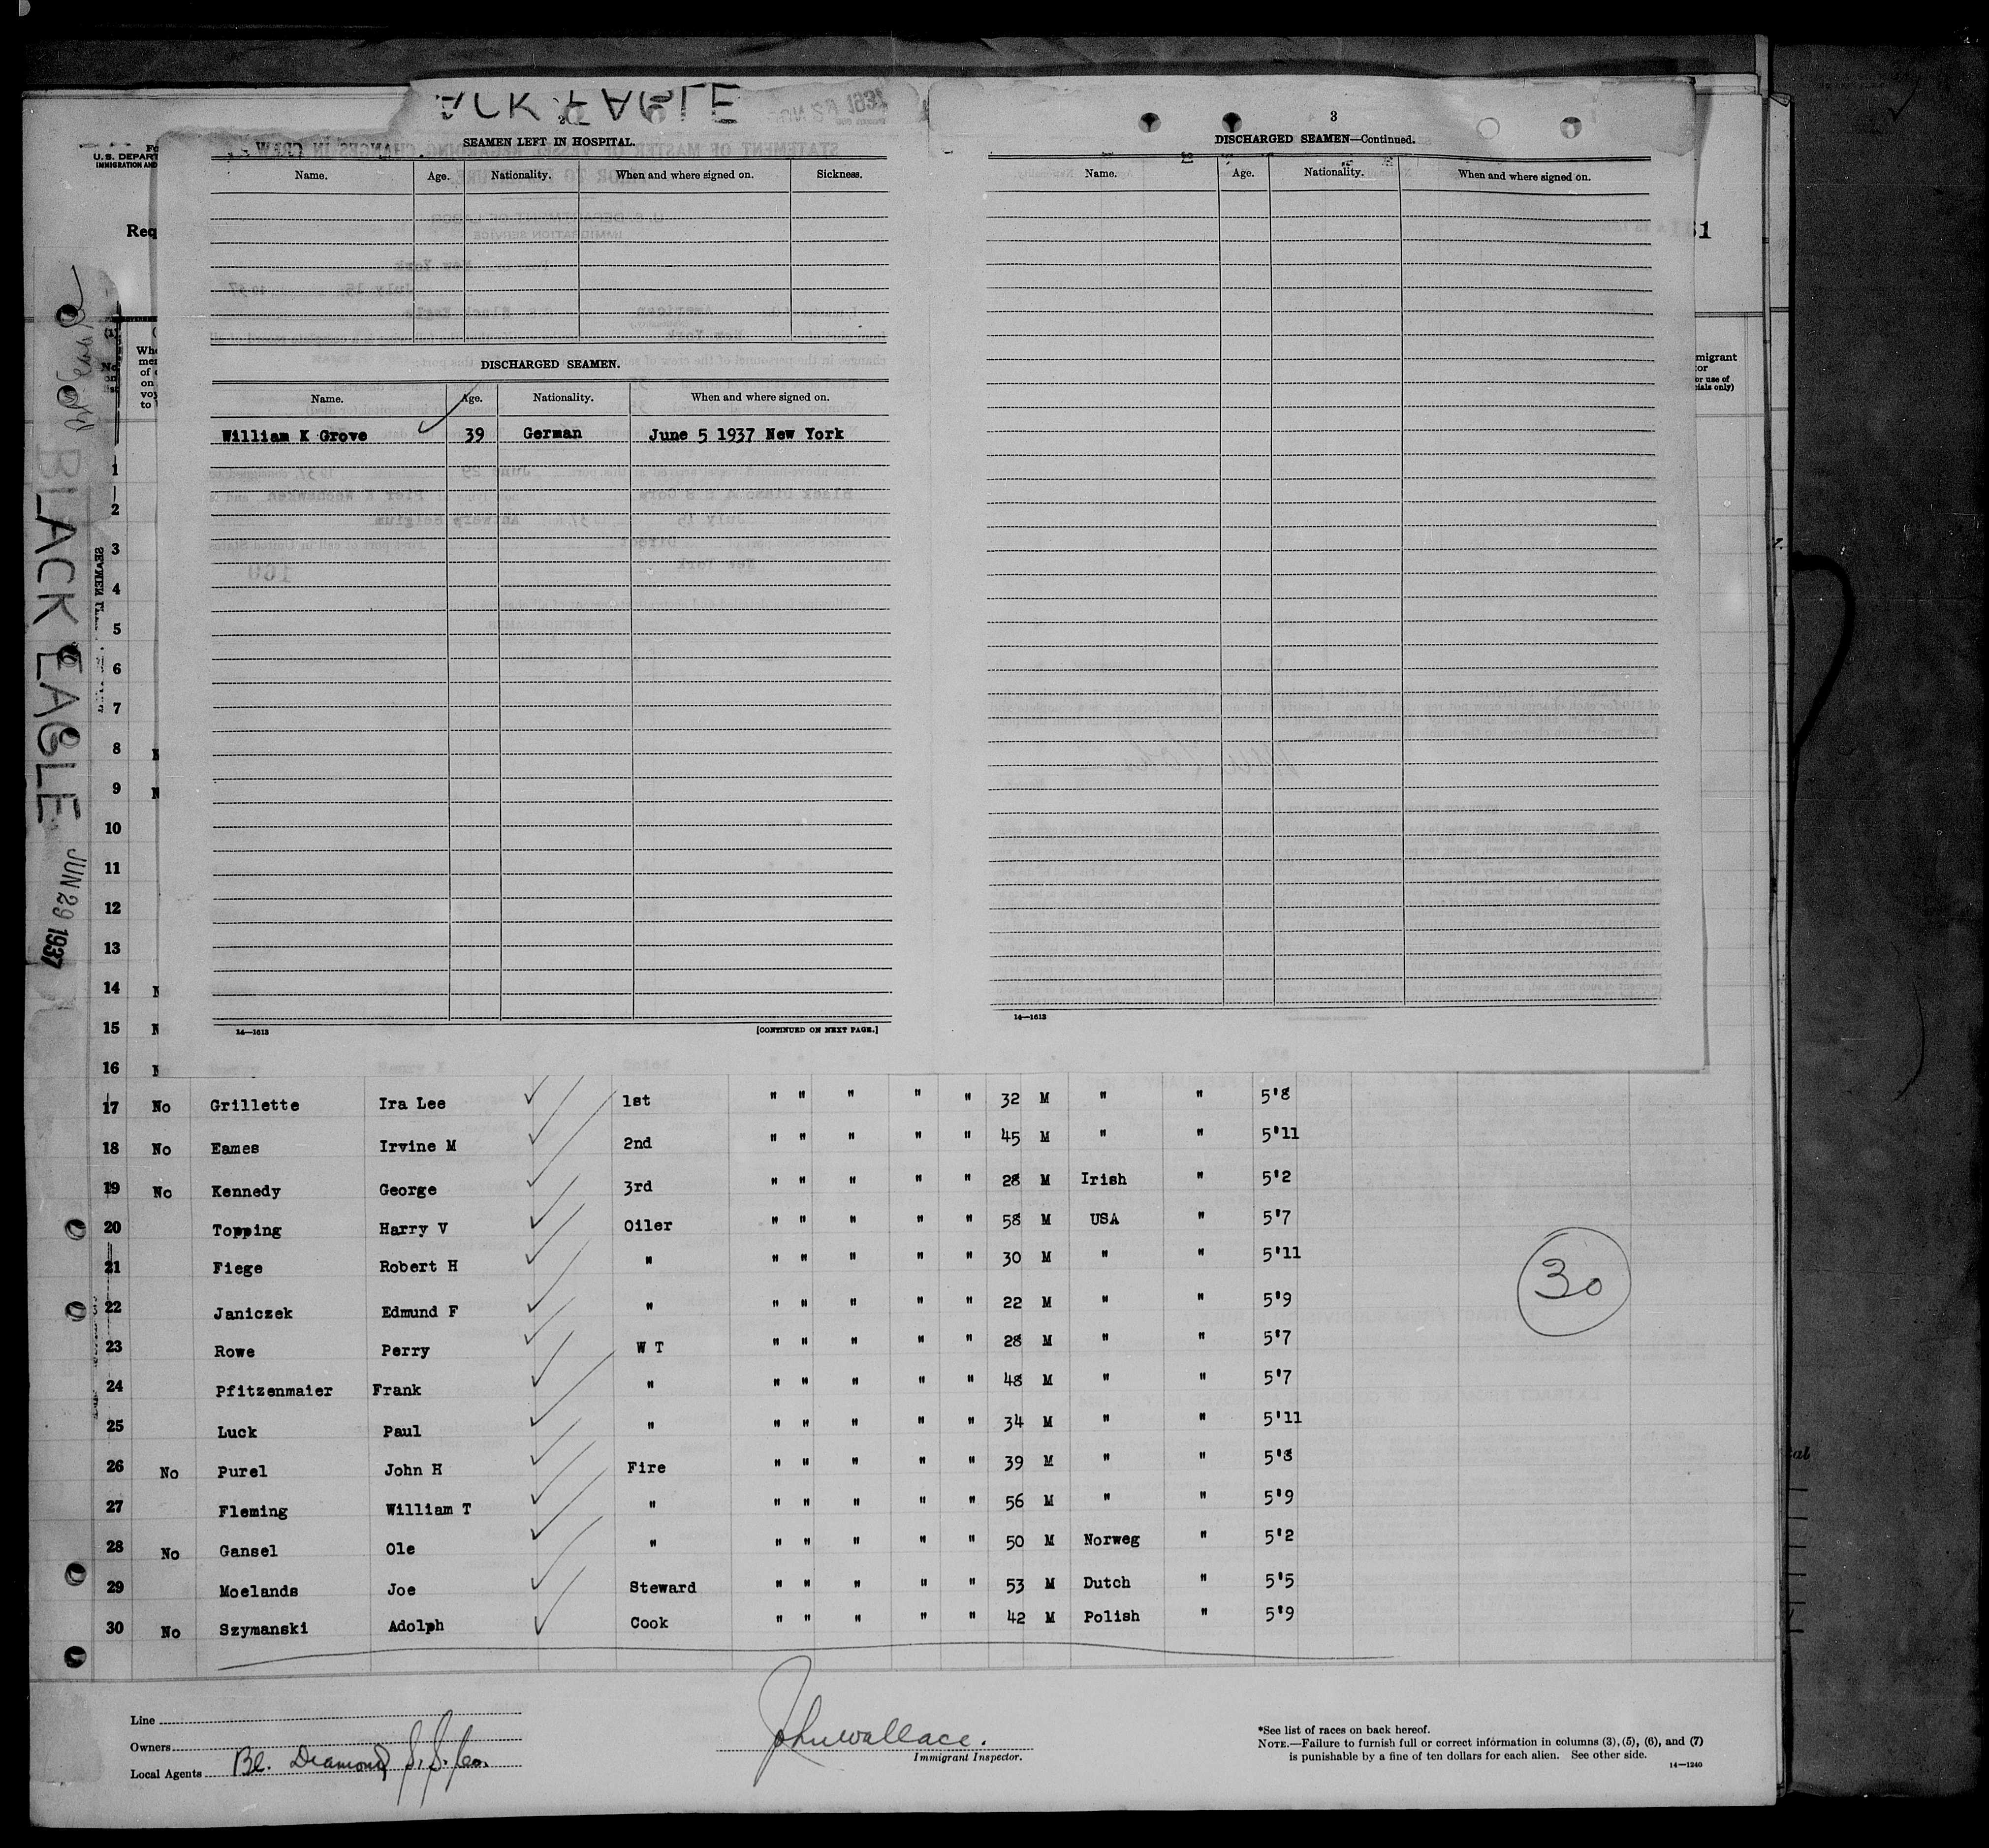 ACK EAGLE
2
SEAMEN LEFT IN HOSPITAL.
Name. Age. Nationality. When and where signed on. Sickness.
DISCHARGED SEAMEN.
Name. Age. Nationality. When and where signed on.
William K Grove 39 German June 5 1937 New York
14—1613 [CONTINUED ON NEXT PAGE.]
3
DISCHARGED SEAMEN—Continued.
Name. Age. Nationality. When and where signed on.
14—1613
U.S. DEPART
IMMIGRATION AND
Req
31
migrant
or use of
cials only)
BLACK EAGLE
JUN 29 1937
1
2
3
4
5
6
7
8
9
10
11
12
13
14
15
16
17 No Grillette Ira Lee 1st " " " " " 32 M " " 5'8
18 No Eames Irvine M 2nd " " " " " 45 M " " 5'11
19 No Kennedy George 3rd " " " " " 28 M Irish " 5'2
20 Topping Harry V Oiler " " " " " 58 M USA " 5'7
21 Fiege Robert H " " " " " " 30 M " " 5'11
22 Janiczek Edmund F " " " " " " 22 M " " 5'9
23 Rowe Perry W T " " " " " 28 M " " 5'7
24 Pfitzenmaier Frank " " " " " " 48 M " " 5'7
25 Luck Paul " " " " " " 34 M " " 5'11
26 No Purel John H Fire " " " " " 39 M " " 5'8
27 Fleming William T " " " " " " 56 M " " 5'9
28 No Gansel Ole " " " " " " 50 M Norweg " 5'2
29 Moelands Joe Steward " " " " " 53 M Dutch " 5'5
30 No Szymanski Adolph Cook " " " " " 42 M Polish " 5'9
30
Line
Owners
Local Agents Bl. Diamond S. S. Co.
John Wallace.
Immigrant Inspector.
*See list of races on back hereof.
NOTE.—Failure to furnish full or correct information in columns (3), (5), (6), and (7)
is punishable by a fine of ten dollars for each alien. See other side.
14—1240